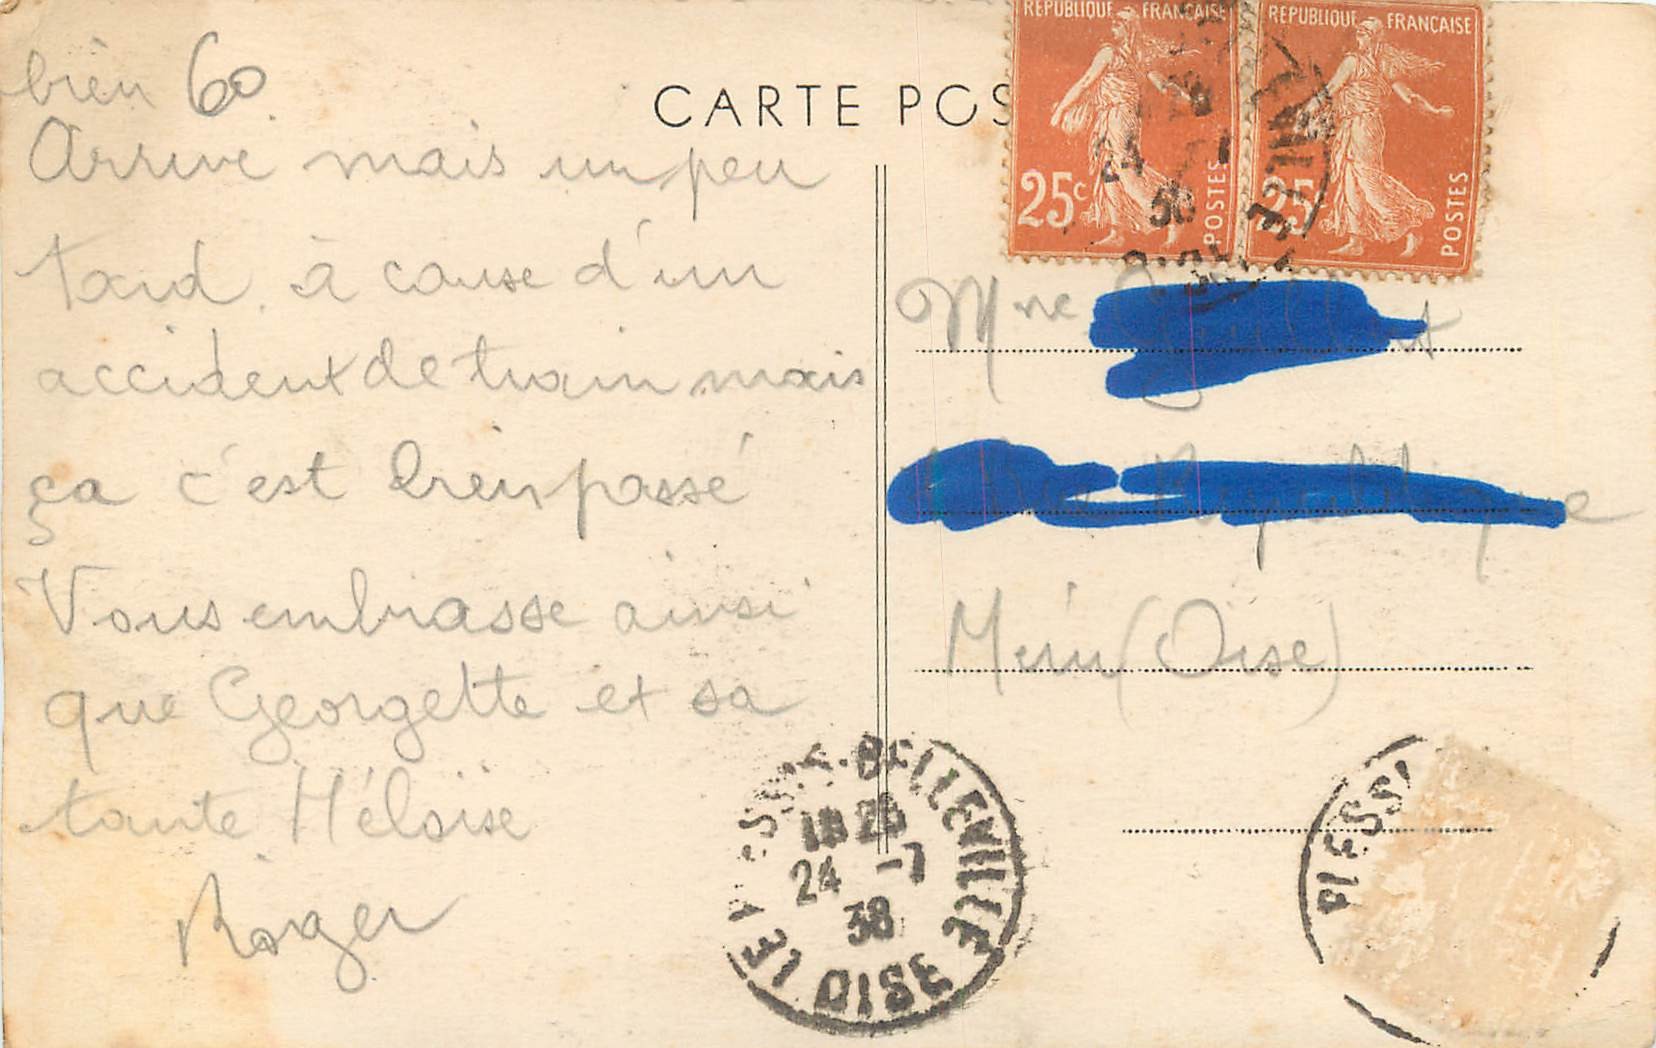 bien 60
Arrivé mais un peu
tard à cause d'un
accident de train mais
ça c'est bien passé
Vous embrasse ainsi
que Georgette et sa
tante Héloïse
Roger
CARTE POS
REPUBLIQUE FRANÇAISE
25c
POSTES
REPUBLIQUE FRANÇAISE
25c
POSTES
Mme
République
Meru (Oise)
LE PLESSIS-BELLEVILLE
18 25
24 -7
38
OISE
PLESSI